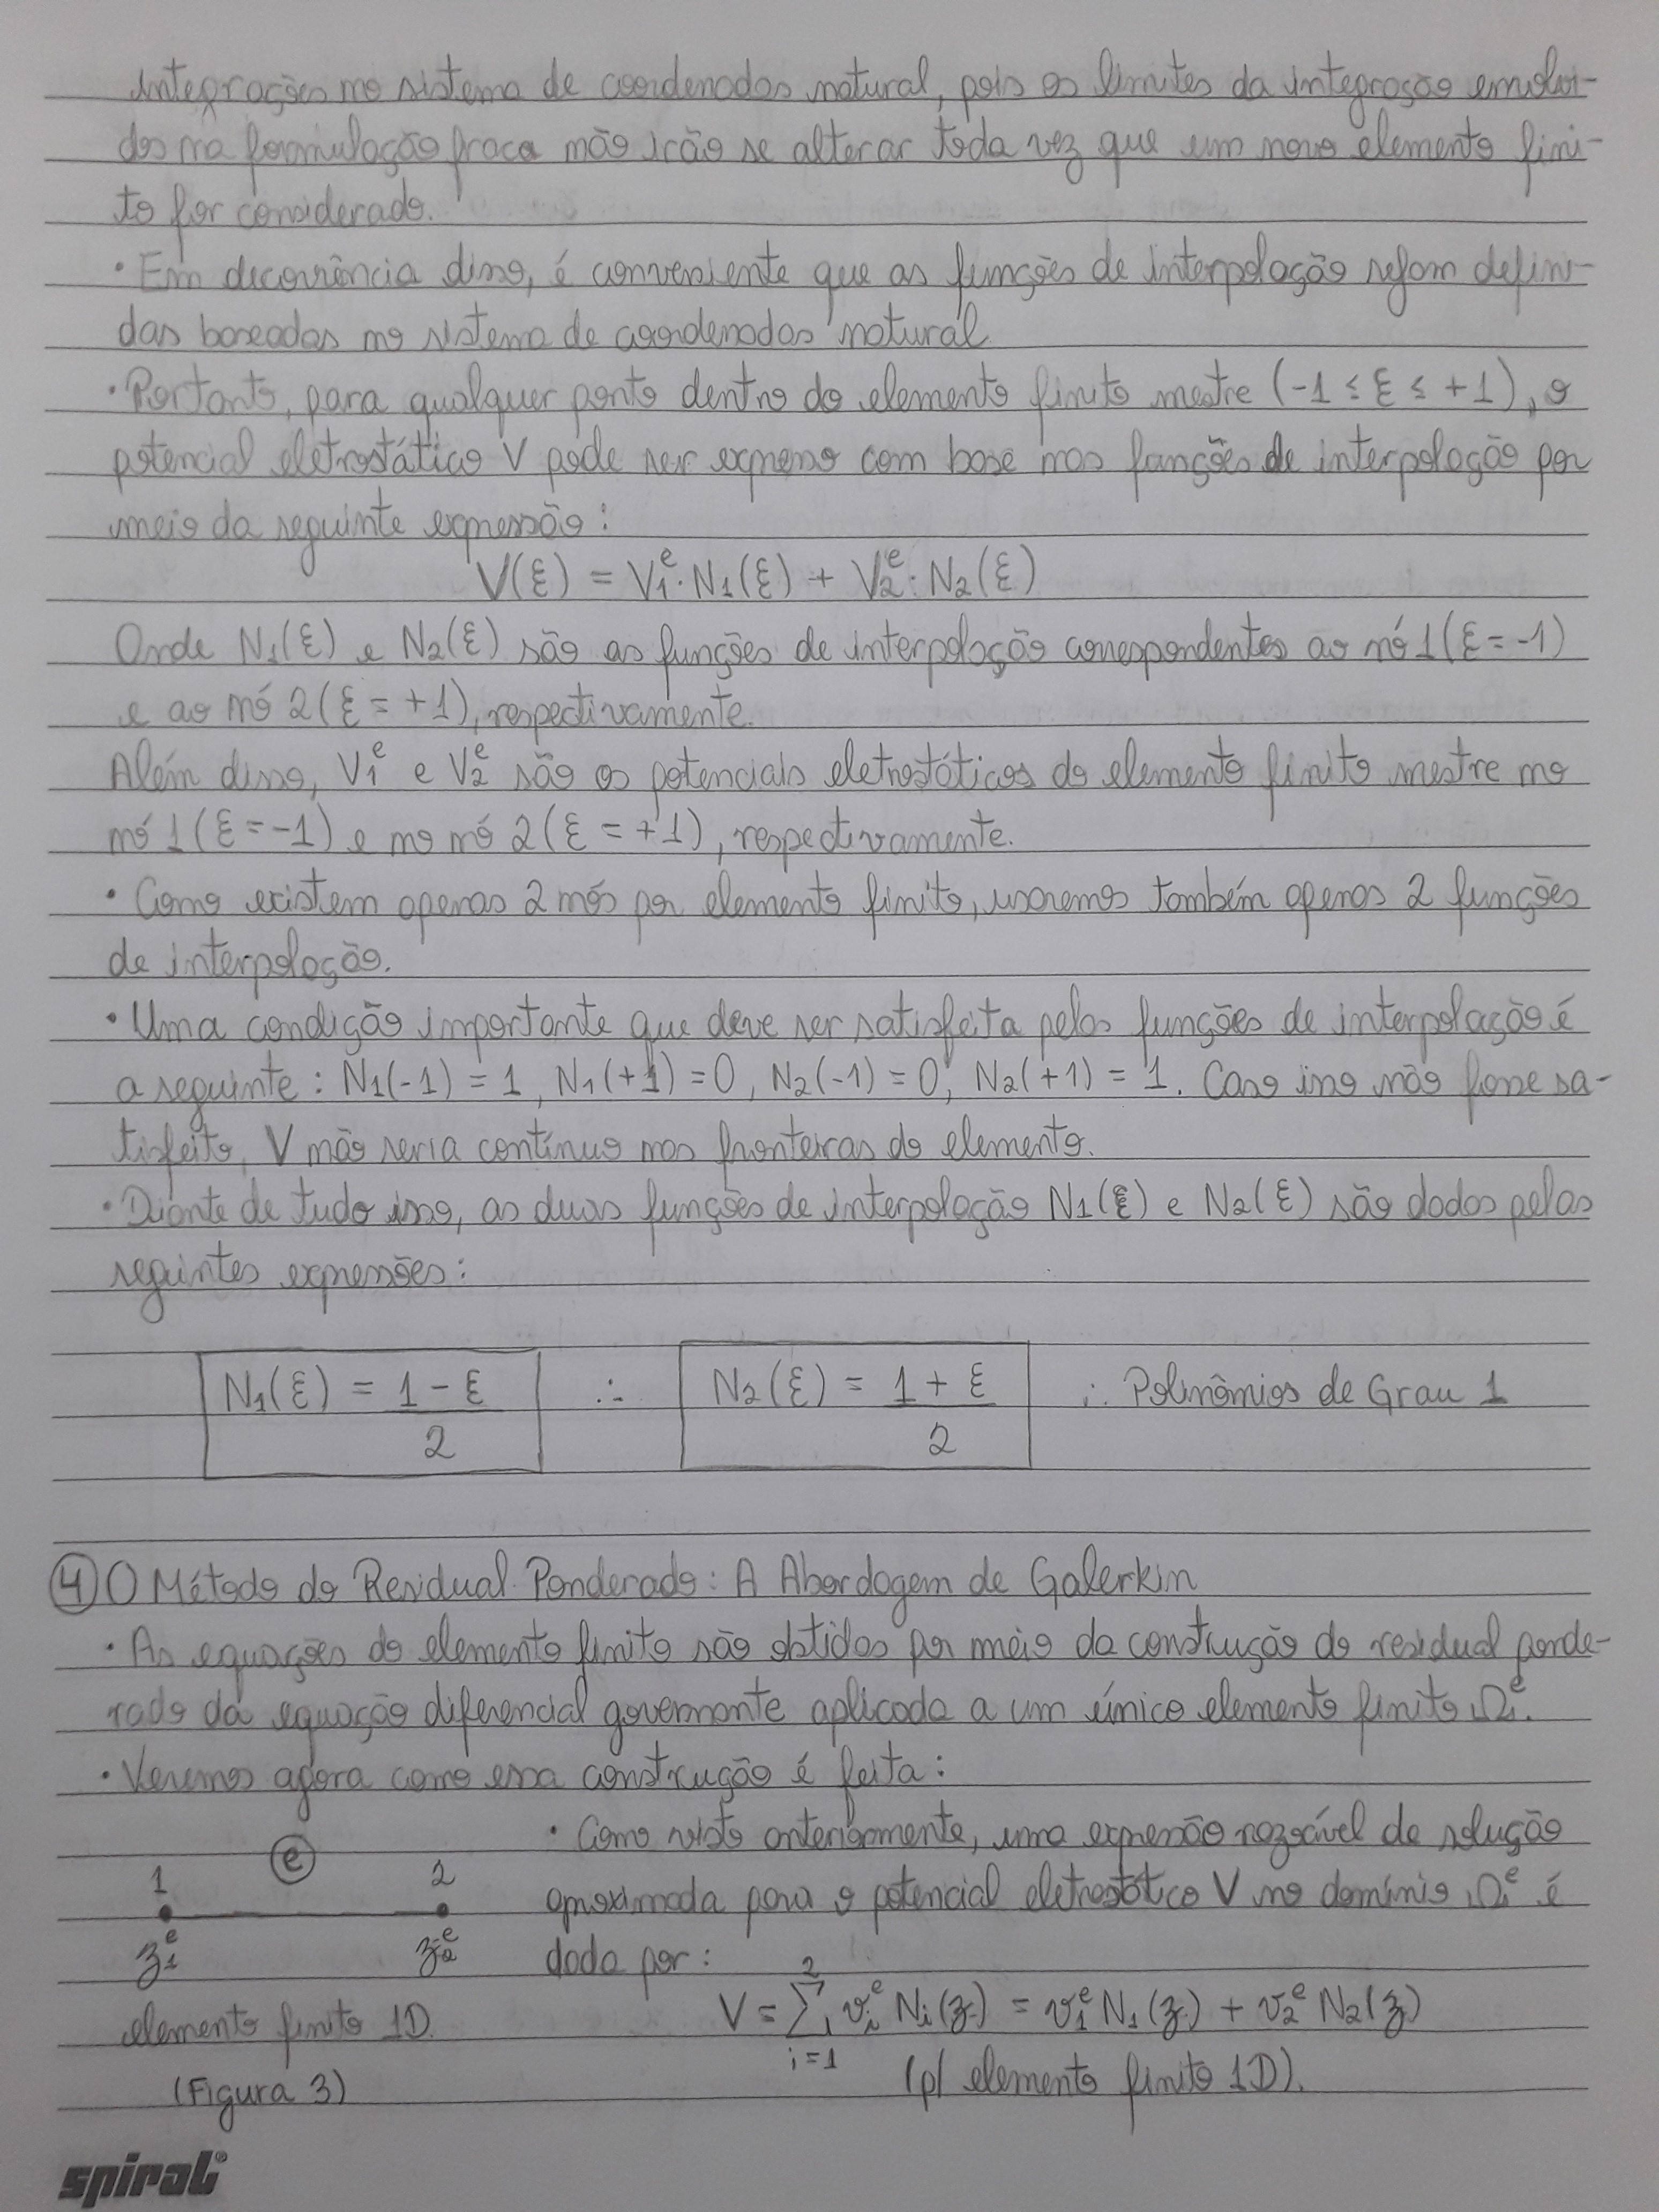 integrações no sistema de coordenadas natural, pois os limites da integração envolvi-
dos na formulação fraca não irão se alterar toda vez que um novo elemento fini-
to for considerado.
• Em decorrência disso, é conveniente que as funções de interpolação sejam defini-
das baseadas no sistema de coordenadas natural.
• Portanto, para qualquer ponto dentro do elemento finito mestre (-1 ≤ ξ ≤ +1), o
potencial eletrostático V pode ser expresso com base nas funções de interpolação por
meio da seguinte expressão:
V(ξ) = V₁ᵉ · N₁(ξ) + V₂ᵉ · N₂(ξ)
Onde N₁(ξ) e N₂(ξ) são as funções de interpolação correspondentes ao nó 1 (ξ = -1)
e ao nó 2 (ξ = +1), respectivamente.
Além disso, V₁ᵉ e V₂ᵉ são os potenciais eletrostáticos do elemento finito mestre no
nó 1 (ξ = -1) e no nó 2 (ξ = +1), respectivamente.
• Como existem apenas 2 nós por elemento finito, usaremos também apenas 2 funções
de interpolação.
• Uma condição importante que deve ser satisfeita pelas funções de interpolação é
a seguinte: N₁(-1) = 1, N₁(+1) = 0, N₂(-1) = 0, N₂(+1) = 1. Caso isso não fosse sa-
tisfeito, V não seria contínuo nas fronteiras do elemento.
• Diante de tudo isso, as duas funções de interpolação N₁(ξ) e N₂(ξ) são dadas pelas
seguintes expressões:
N₁(ξ) = (1 - ξ)/2 ∴ N₂(ξ) = (1 + ξ)/2 ∴ Polinômios de Grau 1
④ O Método do Residual Ponderado: A Abordagem de Galerkin
• As equações do elemento finito são obtidas por meio da construção do residual ponde-
rado da equação diferencial governante aplicada a um único elemento finito Ωᵉ.
• Veremos agora como essa construção é feita:
1 ⓔ 2
z₁ᵉ z₂ᵉ
elemento finito 1D
(Figura 3)
• Como visto anteriormente, uma expressão razoável de solução
aproximada para o potencial eletrostático V no domínio Ωᵉ é
dada por:
V = Σᵢ₌₁² vᵢᵉ Nᵢ(z) = v₁ᵉ N₁(z) + v₂ᵉ N₂(z)
(p/ elemento finito 1D).
spiral®